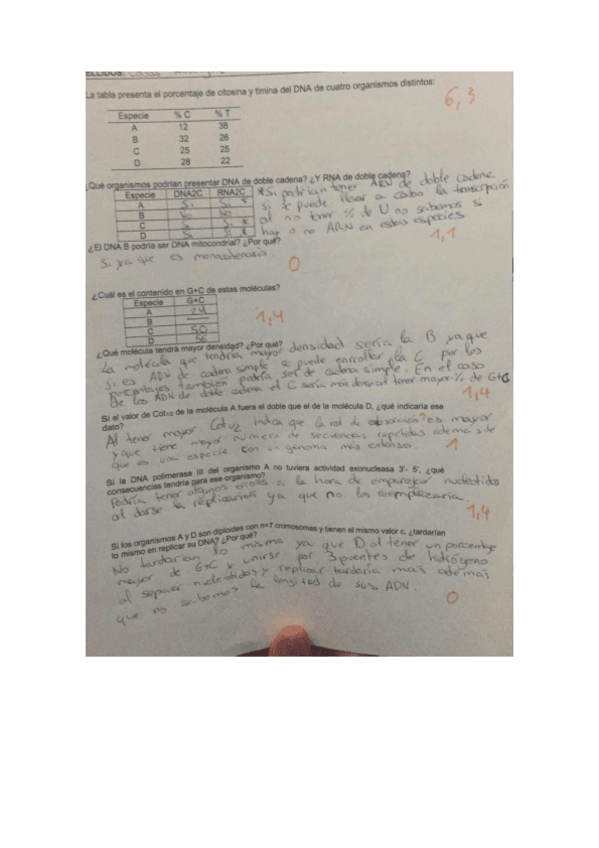 ELLIDOS:
La tabla presenta el porcentaje de citosina y timina del DNA de cuatro organismos distintos:
6,3
Especie % C % T
A 12 38
B 32 26
C 25 25
D 28 22
¿Qué organismos podrían presentar DNA de doble cadena? ¿Y RNA de doble cadena?
Especie DNA2C RNA2C
A Si Si *
B No No
C Si Si *
D Si Si *
* Si podrían tener ARN de doble cadena
si se puede llevar a cabo la transcripción
al no tener % de U no sabemos si
hay o no ARN en estas especies
1,1
¿El DNA B podría ser DNA mitocondrial? ¿Por qué?
Si ya que es monocatenario
0
¿Cuál es el contenido en G+C de estas moléculas?
Especie G+C
A 24
B
C 50
D 56
1,4
¿Qué molécula tendrá mayor densidad? ¿Por qué?
La molécula que tendría mayor densidad sería la B ya que
si es ADN de cadena simple se puede enrollar, la C por los
porcentajes también podría ser de cadena simple. En el caso
de los ADN de doble cadena el C sería más denso al tener mayor % de G+C
1,4
Si el valor de Cot1/2 de la molécula A fuera el doble que el de la molécula D, ¿qué indicaría ese
dato?
Al tener mayor Cot1/2 indica que la vel de observación? es mayor
y que tiene mayor número de secuencias repetidas además de
que es una especie con un genoma más extenso.
1
Si la DNA polimerasa III del organismo A no tuviera actividad exonucleasa 3'- 5', ¿qué
consecuencias tendría para ese organismo?
Podría tener algunos errores a la hora de emparejar nucleótidos
al darse la replicación ya que no los reemplazaría.
1,4
Si los organismos A y D son diploides con n=7 cromosomas y tienen el mismo valor c, ¿tardarían
lo mismo en replicar su DNA? ¿Por qué?
No tardarían lo mismo ya que D al tener un porcentaje
mayor de G+C y unirse por 3 puentes de hidrógeno
al separar nucleótidos y replicar tardaría más además
que no sabemos la longitud de sus ADN.
0